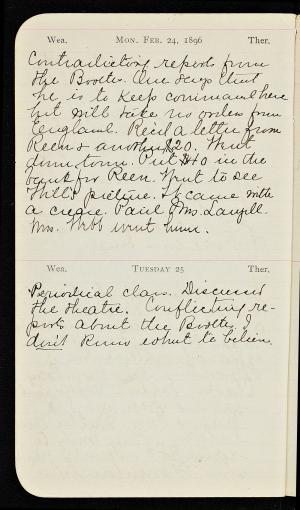 Wea. MON. FEB. 24, 1896 Ther.
Contradicting reports from
the Booths. One says that
he is to keep command here
but will take no orders from
England. Rec'd a letter from
Reen & another $20. Went
down town. Put $40 in the
bank for Reen. Went to see
Will's picture. It came with
a crease. Paid Mrs.
Mrs. Webb went home.
Wea. TUESDAY 25 Ther.
Periodical class. Discussed
the theatre. Conflicting re-
ports about the Booths. I
don't know what to believe.